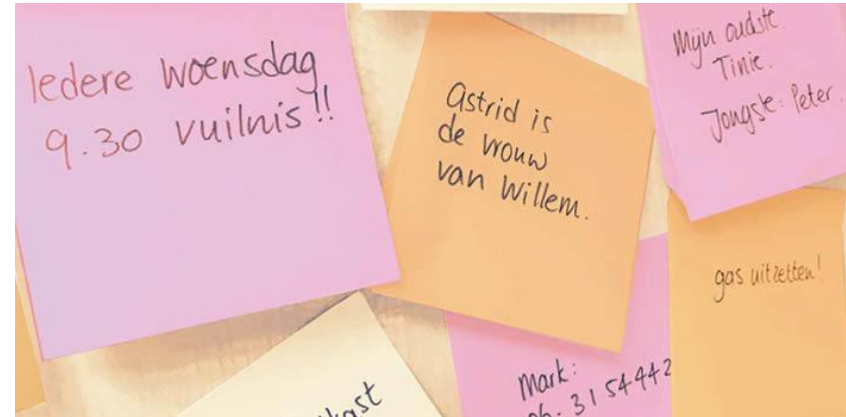 Iedere woensdag
9.30 vuilnis!!
Astrid is
de vrouw
van Willem.
Mijn oudste.
Tinie.
Jongste: Peter.
gas uitzetten!
Mark:
3154442